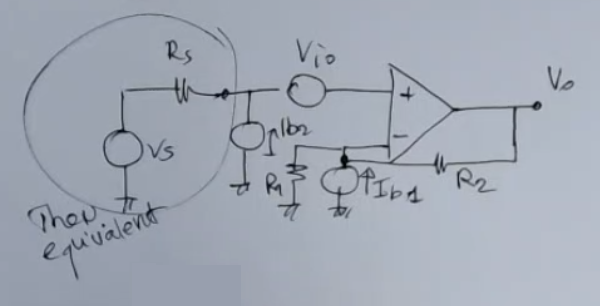 Rs
Vio
Vo
+
Ib2
Vs
−
R1
Ib1
R2
Thev
equivalent